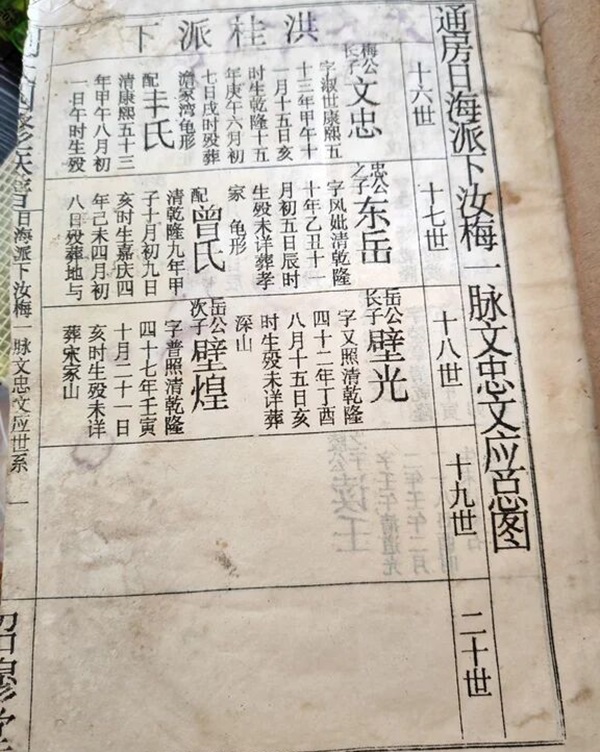 通房日海派下汝梅一脉文忠文应总图
洪桂派下
十六世
梅公长子文忠
字淑世康熙五
十三年甲午十
一月十五日亥
时生乾隆十五
年庚午六月初
七日戌时殁葬
詹家湾龟形
配丰氏
清康熙五十三
年甲午八月初
一日午时生殁
十七世
忠公之子东岳
字风妣清乾隆
十年乙丑十一
月初五日辰时
生殁未详葬孝
家 龟形
配曾氏
清乾隆九年甲
子十月初九日
亥时生嘉庆四
年己未四月初
八日殁葬地与
十八世
岳公长子壁光
字又照清乾隆
四十二年丁酉
八月十五日亥
时生殁未详葬
深山
岳公次子壁煌
字普照清乾隆
四十七年壬寅
十月二十一日
亥时生殁未详
葬宋家山
十九世
二十世
日海派下汝梅一脉文忠文应世系 一